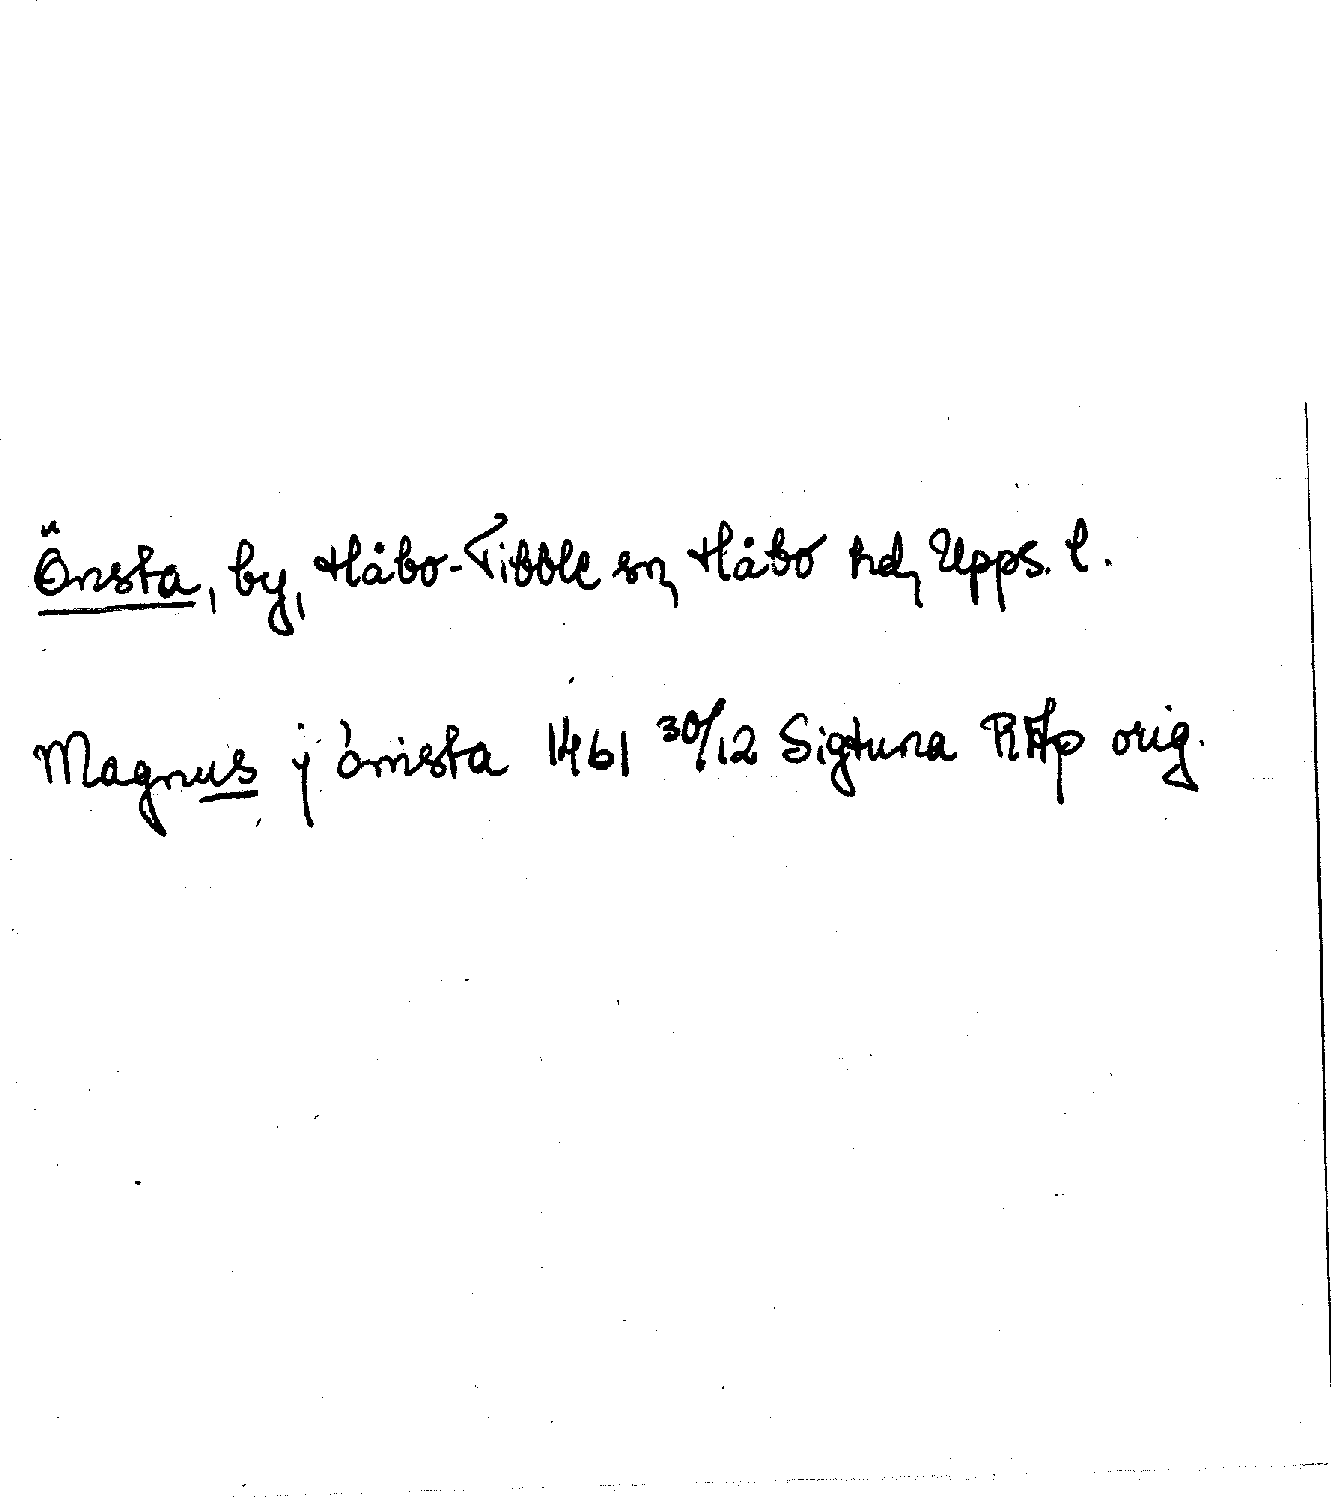 Önsta, by, Håbo-Tibble sn, Håbo hd, Upps. l.
Magnus j önista 1461 30/12 Sigtuna RAp orig.